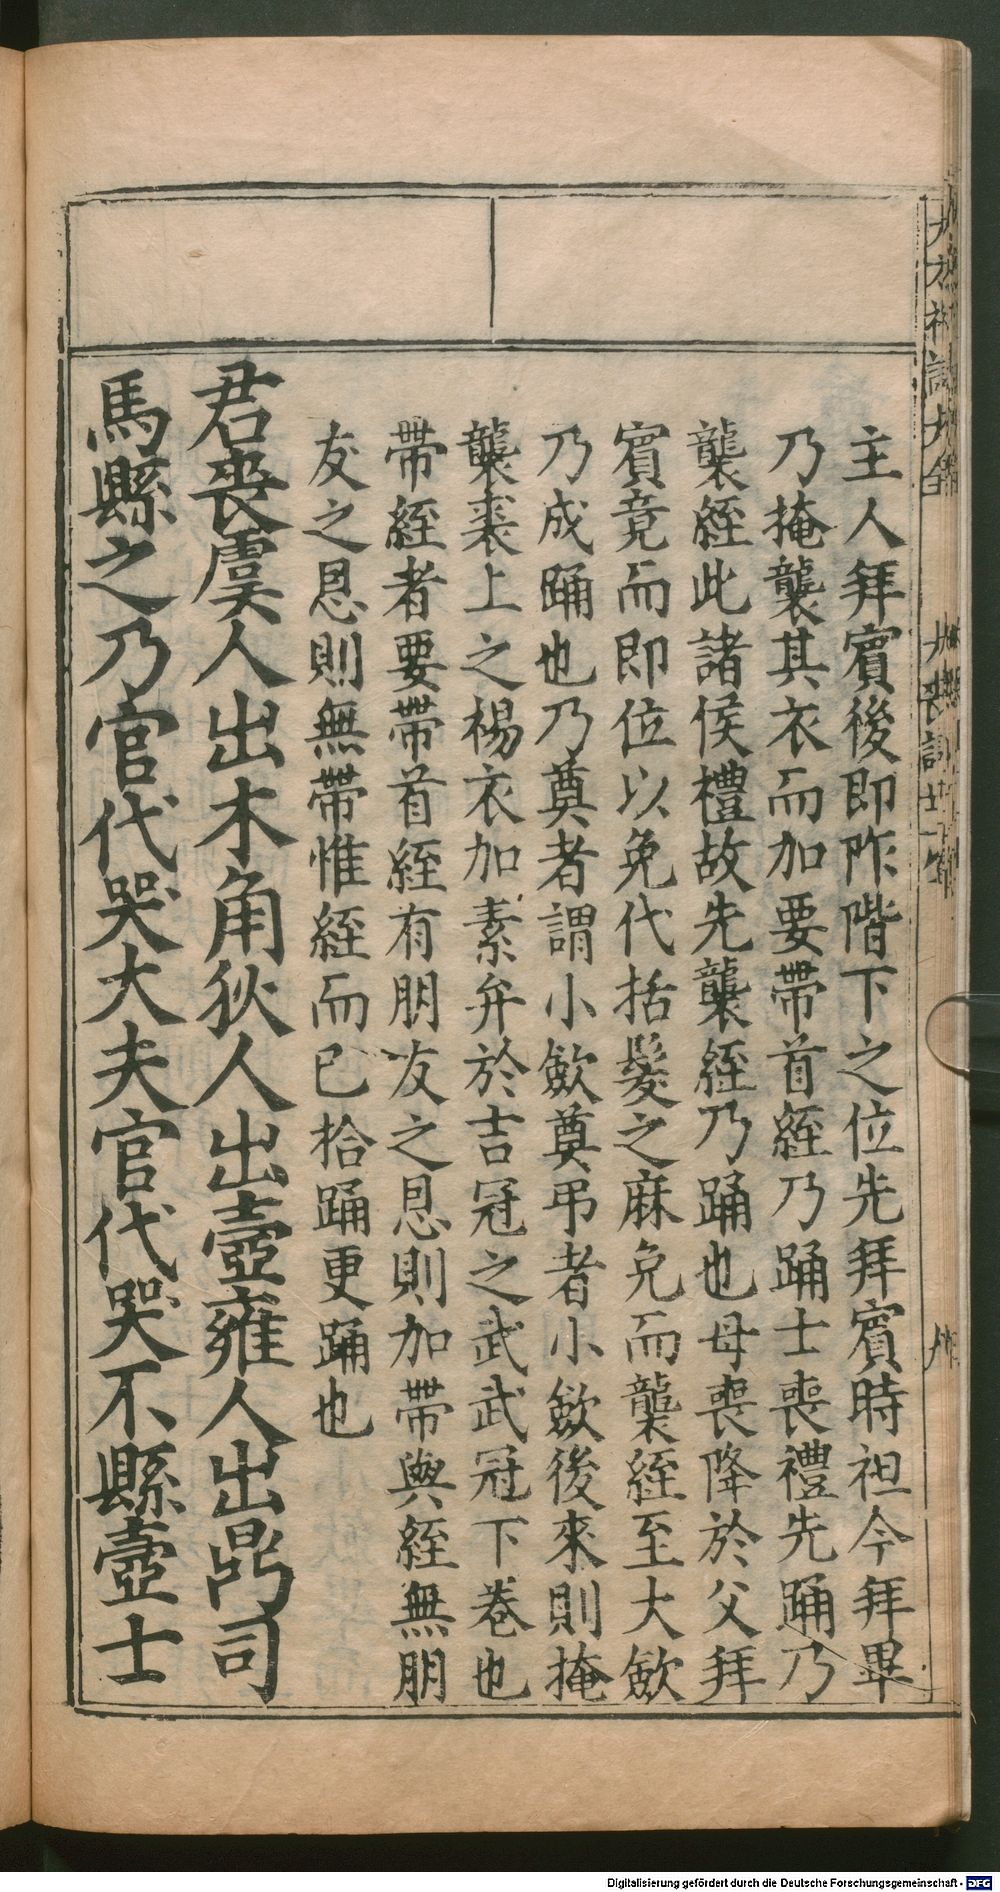 主人拜賓後即阼階下之位先拜賓時袒今拜畢
乃掩襲其衣而加要帶首絰乃踊士喪禮先踊乃
襲絰此諸侯禮故先襲絰乃踊也母喪降於父拜
賓竟而即位以免代括髮之麻免而襲絰至大斂
乃成踊也乃奠者謂小斂奠弔者小斂後來則掩
襲裘上之裼衣加素弁於吉冠之武武冠下卷也
帶絰者要帶首絰有朋友之恩則加帶與絰無朋
友之恩則無帶惟絰而已拾踊更踊也
君喪虞人出木角狄人出壺雍人出鼎司
馬縣之乃官代哭大夫官代哭不縣壺士
Digitalisierung gefördert durch die Deutsche Forschungsgemeinschaft - DFG